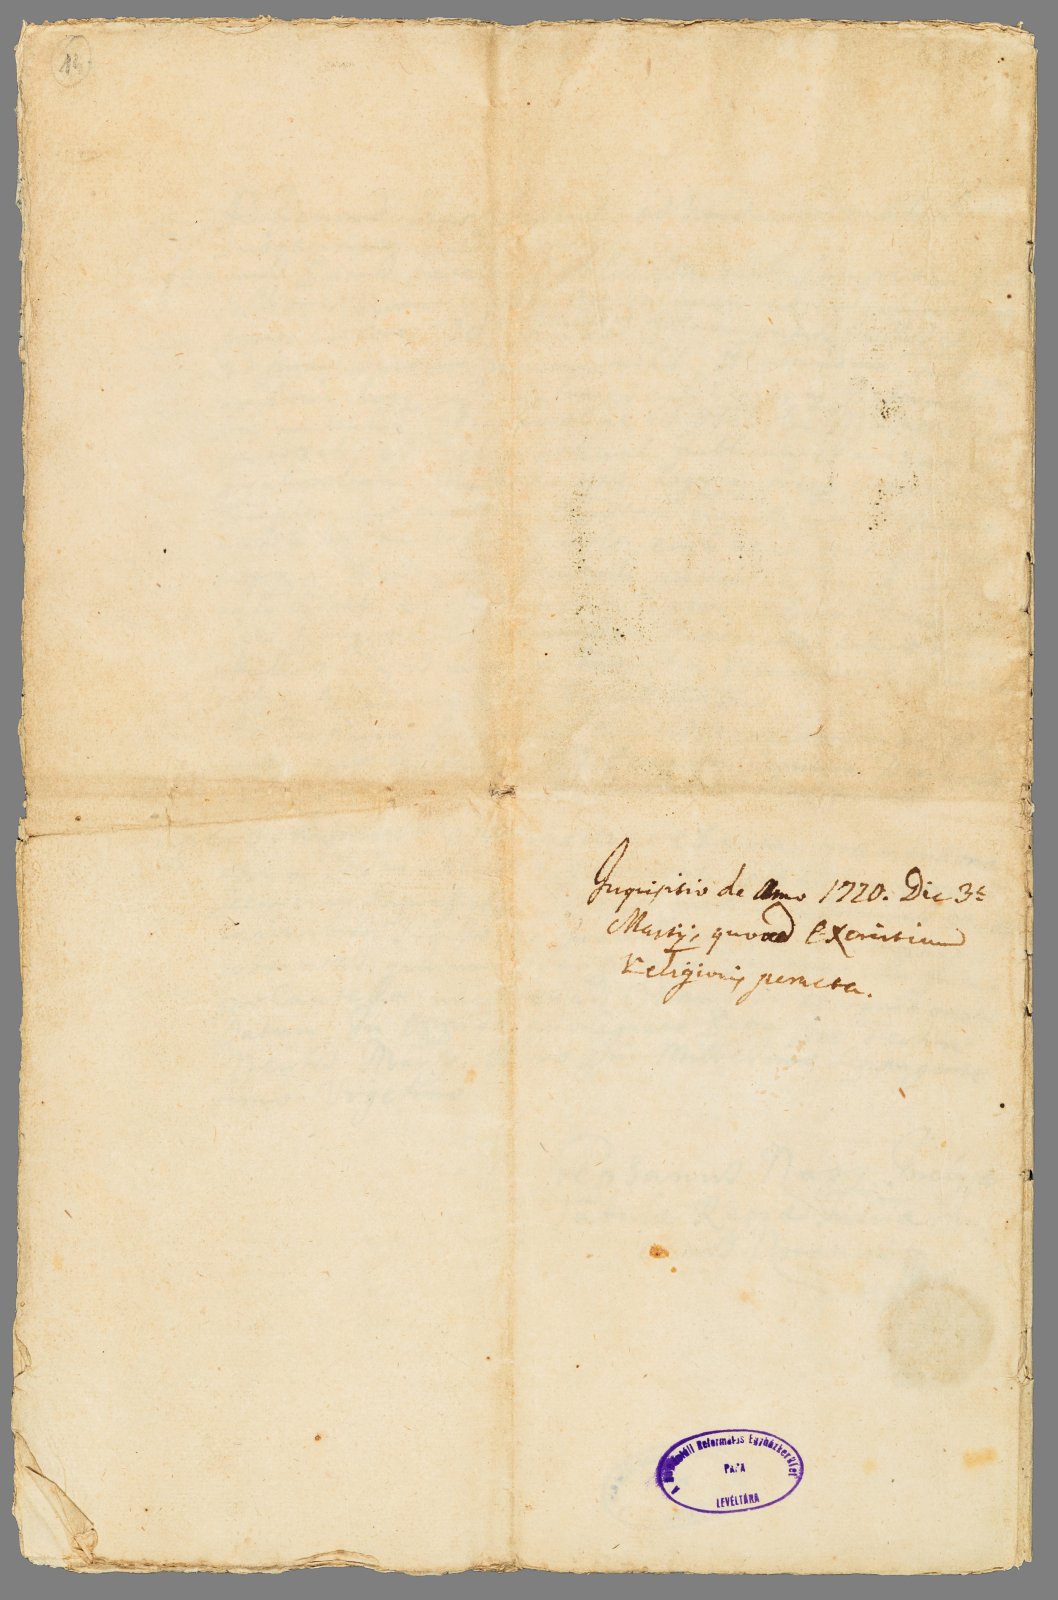 14.
Inquisitio de Anno 1720. Die 3ᵃ
Martij, quoad Exercitium
Religionis peracta.
A Dunántúli Református Egyházkerület
PÁPA
LEVÉLTÁRA